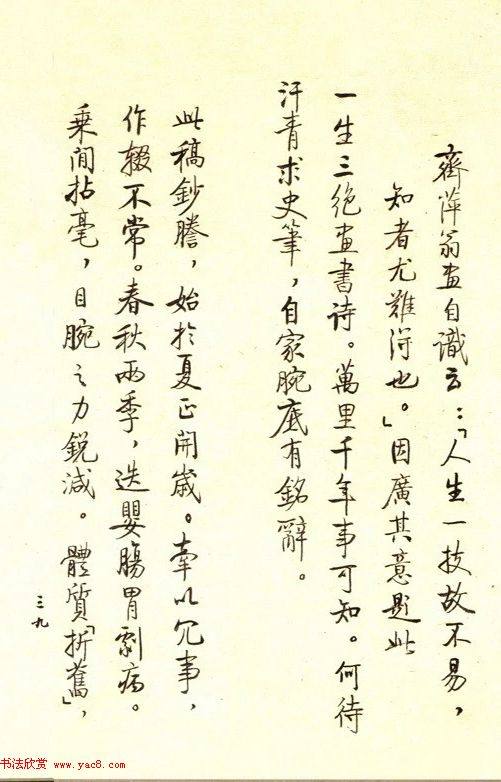 齊萍翁畫自識云：「人生一技故不易，
知者尤難得也。」因廣其意題此
一生三绝畫書诗。萬里千年事可知。何待
汗青求史筆，自家腕底有銘辭。
此稿鈔謄，始於夏正開歲。牽以冗事，
作辍不常。春秋兩季，迭嬰腸胃劇病。
乘间拈毫，目腕之力鋭减。體質「折舊」，
三九
书法欣赏 www.yac8.com